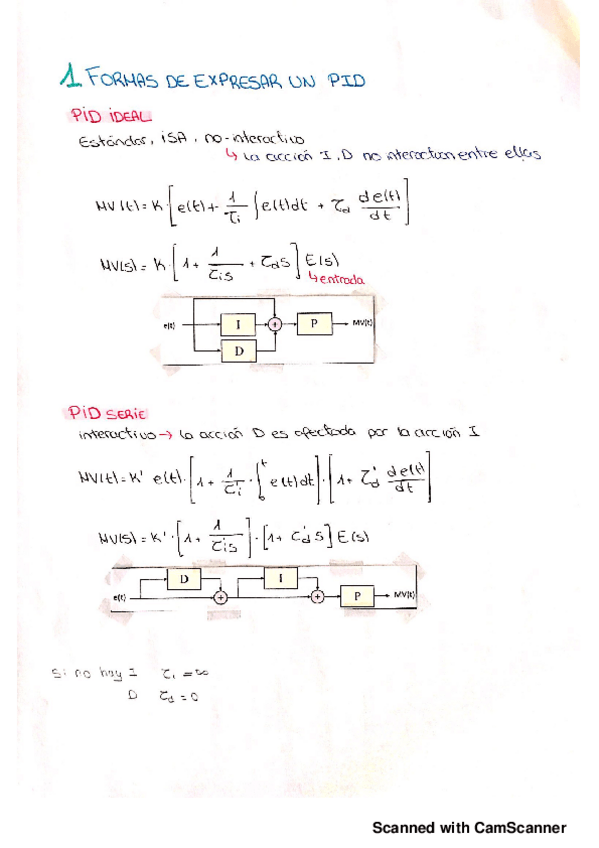 1 FORMAS DE EXPRESAR UN PID
PID IDEAL
Estándar, ISA, no-interactivo
↳ La acción I, D no interactuan entre ellas
MV(t) = K [e(t) + 1/τi ∫e(t)dt + τd de(t)/dt]
MV(s) = K · [1 + 1/τis + τds] E(s)
↳ entrada
e(t) I + P MV(t)
D
PID SERIE
interactivo → la acción D es afectada por la acción I
MV(t) = K' e(t) · [1 + 1/τi · ∫₀ᵗ e(t)dt] · [1 + τ'd de(t)/dt]
MV(s) = K' · [1 + 1/τis] · [1 + τ'd s] E(s)
D I
e(t) + + P MV(t)
Si no hay I τi = ∞
D τd = 0
Scanned with CamScanner